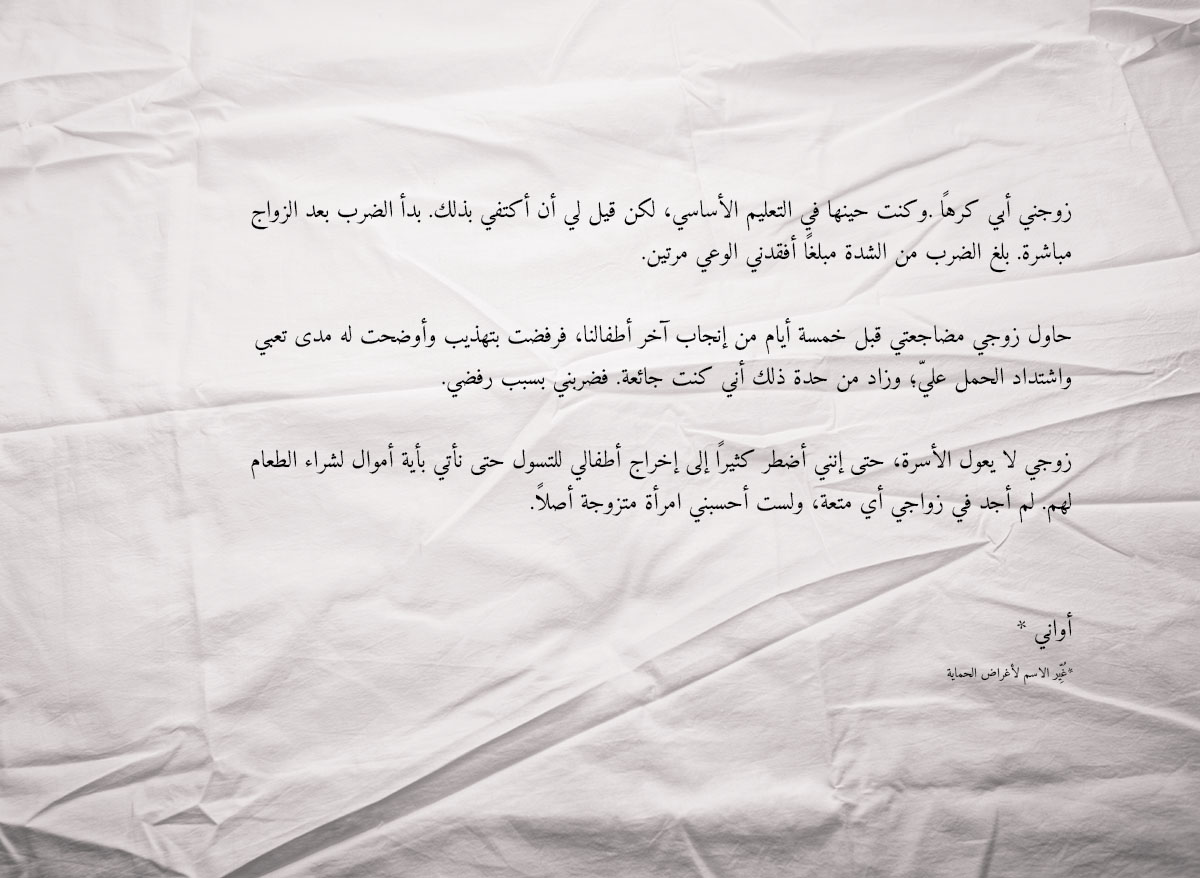 زوجني أبي كرهاً .وكنت حينها في التعليم الأساسي، لكن قيل لي أن أكتفي بذلك. بدأ الضرب بعد الزواج
مباشرة. بلغ الضرب من الشدة مبلغاً أفقدني الوعي مرتين.
حاول زوجي مضاجعتي قبل خمسة أيام من إنجاب آخر أطفالنا، فرفضت بتهذيب وأوضحت له مدى تعبي
واشتداد الحمل عليّ؛ وزاد من حدة ذلك أني كنت جائعة. فضربني بسبب رفضي.
زوجي لا يعول الأسرة، حتى إنني أضطر كثيراً إلى إخراج أطفالي للتسول حتى نأتي بأية أموال لشراء الطعام
لهم. لم أجد في زواجي أي متعة، ولست أحسبني امرأة متزوجة أصلاً.
أواني *
*غُيِّر الاسم لأغراض الحماية